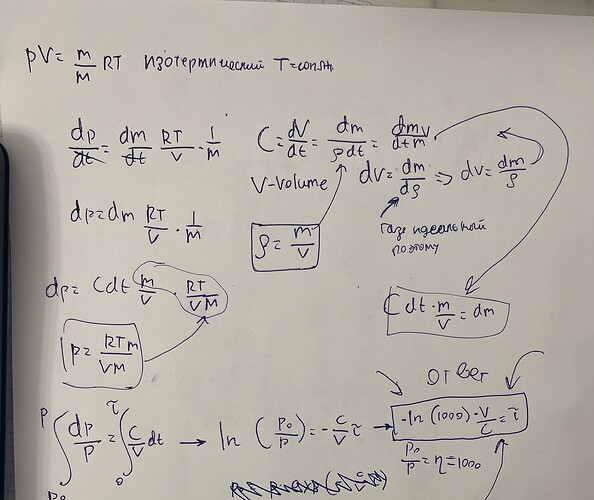 pV = m/M RT изотермический T=const
dp/dt = dm/dt RT/V · 1/M
C = dV/dt = dm/ρdt = dmV/dtm
V-volume
dV = dm/dρ => dV = dm/ρ
dp = dm RT/V · 1/M
ρ = m/V
газ идеальный
поэтому
dp = Cdt m/V · RT/VM
Cdt · m/V = dm
p = RTm/VM
ответ
∫ p p₀ dp/p = ∫ τ 0 C/V dt → ln (p₀/p) = - C/V τ → -ln (1000) · V/C = τ
p₀/p = η = 1000